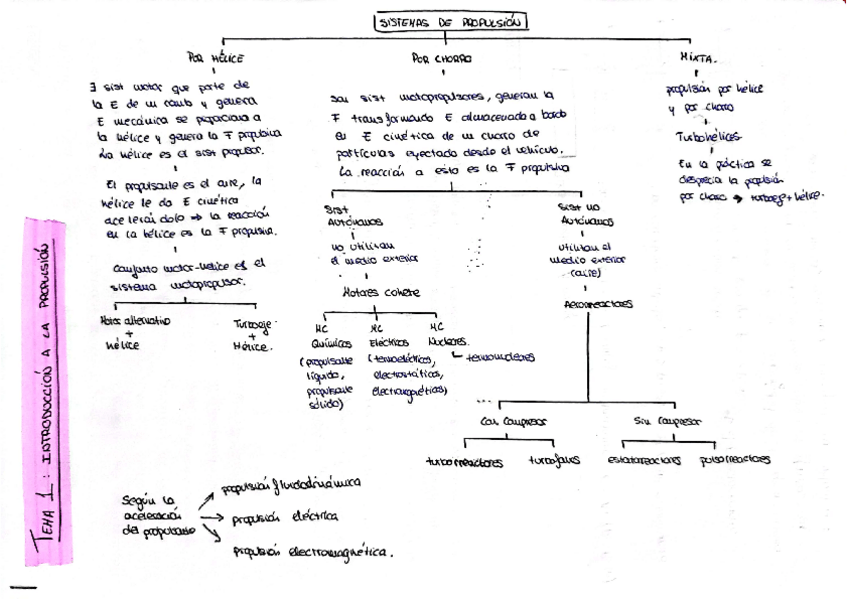 SISTEMAS DE PROPULSIÓN
POR HÉLICE
∃ sist motor que parte de
la E de un comb y genera
E mecánica se proporciona a
la hélice y genera la F propulsiva
La hélice es el sist propulsor.
El propulsante es el aire, la
hélice le da E cinética
acelerándolo ⇒ la reacción
en la hélice es la F propulsiva.
Conjunto motor-hélice es el
sistema motopropulsor.
Motor alternativo
+
hélice
Turboeje
+
Hélice.
POR CHORRO
son sist motopropulsores, generan la
F transformando E almacenada a bordo
en E cinética de un chorro de
partículas eyectado desde el vehículo.
La reacción a esto es la F propulsiva
Sist
Autónomos
no utilizan
el medio exterior
Motores cohete
MC
Químicos
(propulsante
líquido,
propulsante
sólido)
MC
Eléctricos
(termoeléctricos,
electrostáticos,
electromagnéticos)
MC
Nucleares.
termonucleares
Sist no
Autónomos
utilizan el
medio exterior
(aire)
Aerorreactores
Con Compresor
turborreactores
turbofanes
Sin Compresor
estatorreactores
pulsorreactores
MIXTA.
propulsión por hélice
y por chorro
Turbohélices
En la práctica se
desprecia la propulsión
por chorro → turboeje + hélice.
TEMA 1: INTRODUCCIÓN A LA PROPULSIÓN
Según la
aceleración
del propulsante
propulsión fluidodinámica
propulsión eléctrica
propulsión electromagnética.